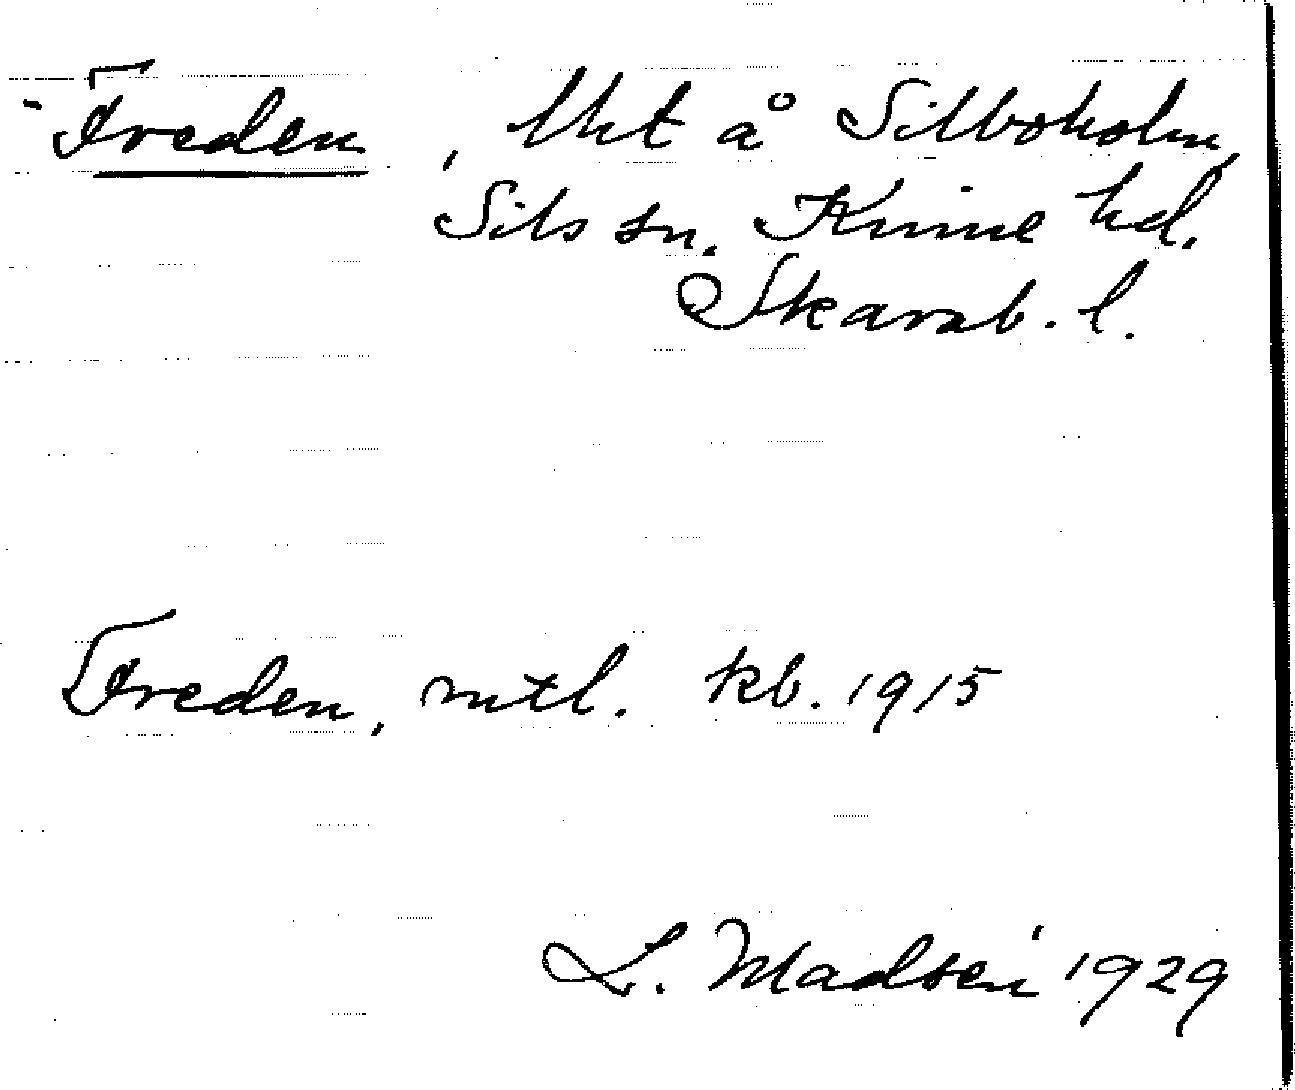 Freden, lht å Silboholm,
Sils sn. Kinne hd.
Skarab. l.
Freden, mtl. kb. 1915
L. Madsén 1929